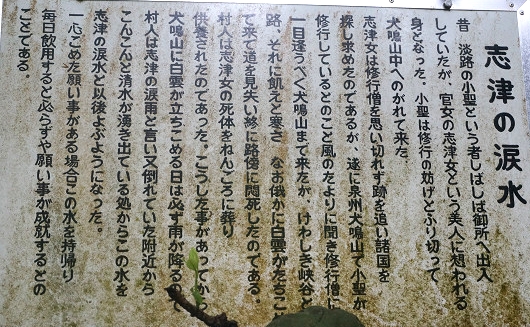 志津の涙水
昔 淡路の小聖という者しばしば御所へ出入
していたが、官女の志津女という美人に想われる
身となった。小聖は修行の妨げとふり切って
犬鳴山中へのがれて来た。
志津女は修行僧を思い切れず跡を追い諸国を
探し求めたのであるが、遂に泉州犬鳴山で小聖が
修行しているとのこと風のたよりに聞き修行僧に
一目逢うべく犬鳴山まで来たが、けわしき峡谷と
路、それに飢えと寒さ なお俄かに白雲がたちこ
て来て道を見失い終に路傍に悶死したのである。
村人は志津女の死体をねんごろに葬り
供養されたのであった。こうした事があってから
犬鳴山に白雲が立ちこめる日は必ず雨が降るので
村人は志津の涙雨と言い又倒れていた附近から
こんこんと清水が湧き出ている処からこの水を
志津の涙水と以後よぶようになった。
一心こめた願い事がある場合この水を持帰り
毎日飲用すると必らずや願い事が成就するとの
ことである。